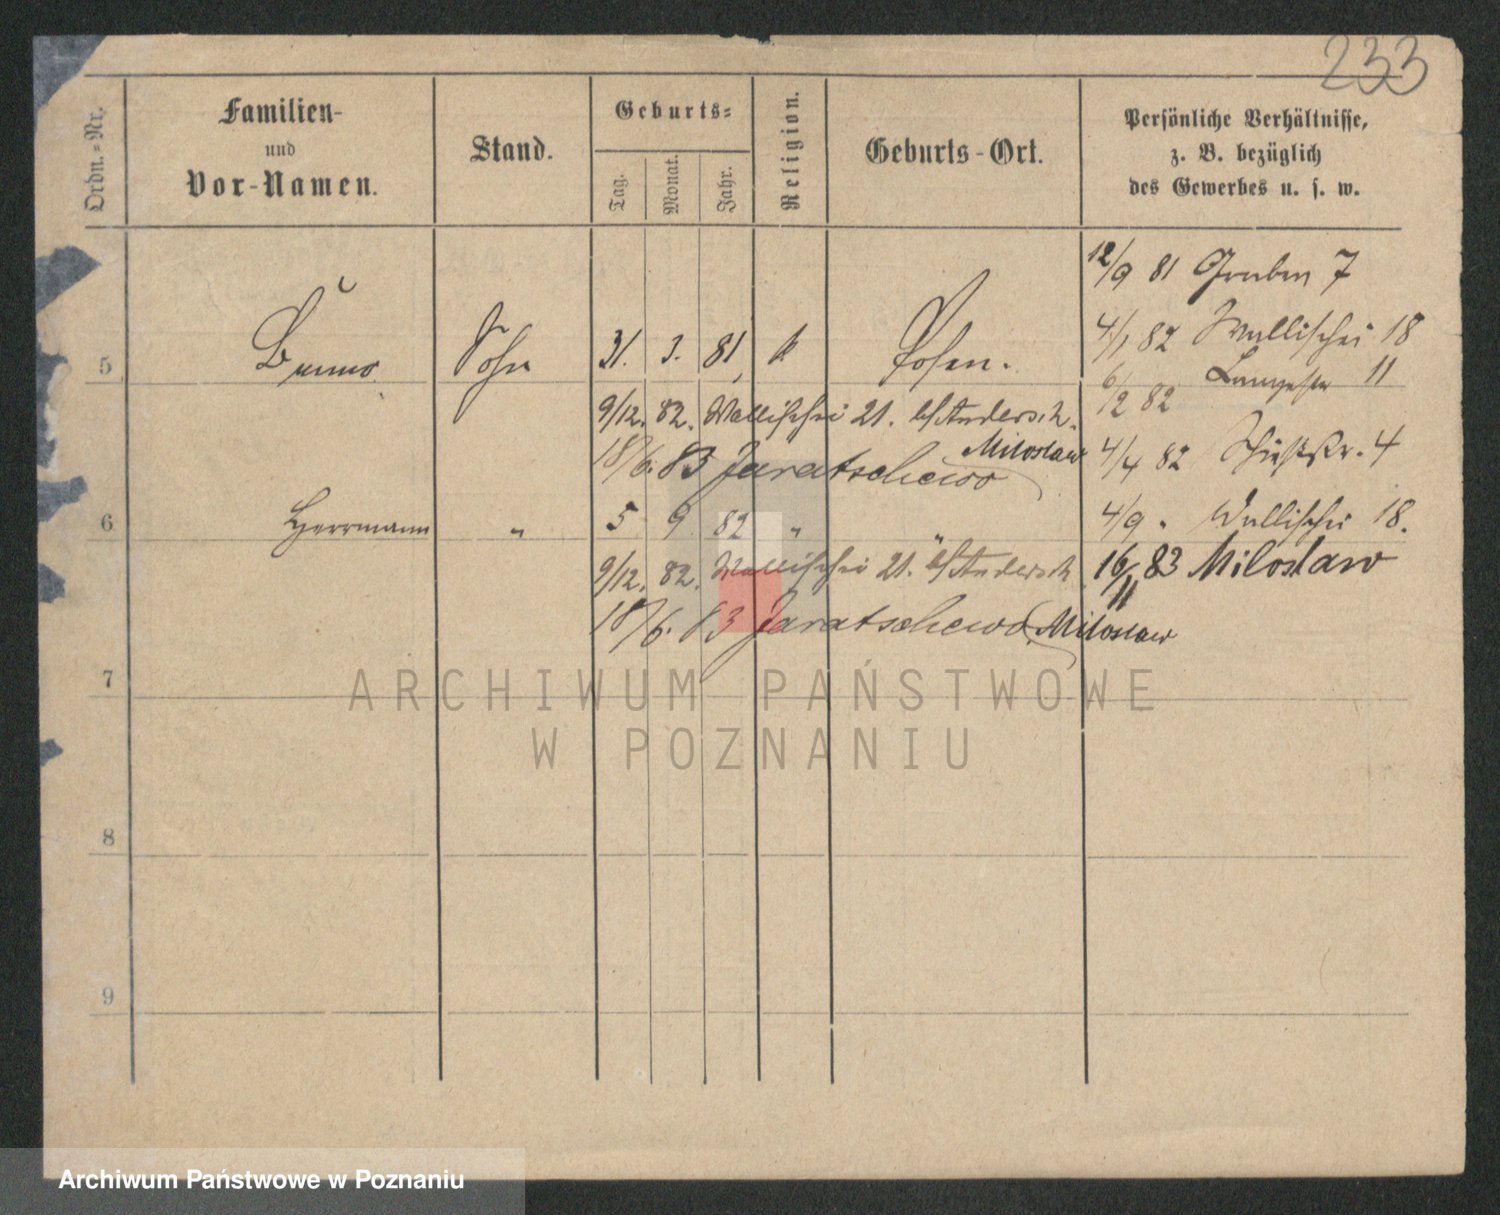 233
Ordn.-Nr.
Familien-
und
Vor-Namen.
Stand.
Geburts-
Tag.
Monat.
Jahr.
Religion.
Geburts-Ort.
Persönliche Verhältnisse,
z. B. bezüglich
des Gewerbes u. s. w.
12/9 81 Graben 7
4/1 82 Wallischei 18
5 Bruno Sohn 31. 3. 81 k Posen.
6/2 82 Langestr 11
9/12. 82. Wallischei 21. b/Andersch.
18/6. 83 Jaratschewo Miloslaw
4/4 82 Schützstr. 4
6 Herrmann " 5 9 82 " "
4/9 " Wallischei 18.
9/12. 82. Wallischei 21. b/Andersch
16/11 83 Miloslaw
18/6. 83 Jaratschewo, Miloslaw
7
8
9
ARCHIWUM PAŃSTWOWE
W POZNANIU
Archiwum Państwowe w Poznaniu